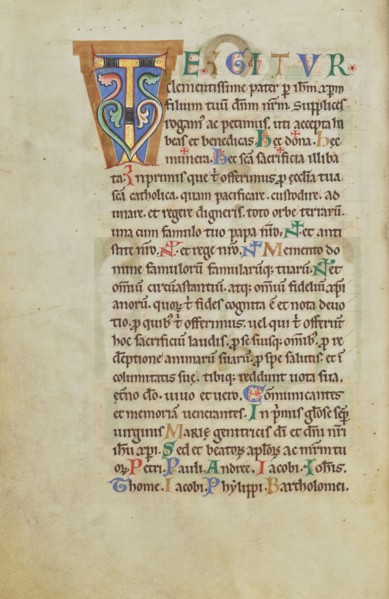 TE IGITVR.
clementissime pater p ihm xpm
filium tuū dnm nrm. supplices
rogamus ac petimus. uti accepta ha
beas et benedicas. Hec ✝ dona. Hec
✝ munera. Hec scā ✝ sacrificia illiba
ta. Inprimis que t offerimus p ecclia tua
scā catholica. quam pacificare. custodire. ad
unare. et regere digneris. toto orbe terrarū.
una cum famulo tuo papa nro. N. et anti
stite nro. N. et rege nro. N. Memento do
mine famulorū famularūq; tuarū. N. et
omniū circūastantiū. atq; omniū fideliū xpi
anorū. quorꝝ t fides cognita ē et nota deuo
tio. p quib; t offerimus. uel qui t offerunt
hoc sacrificiū laudis. p se suisq; omīb;. p re
dēptione animarū suarū. p spe salutis. et ī
columitatis suę. tibiq; reddunt uota sua.
etno dō. uiuo et uero. Cōmunicantes
et memoriā uenerantes. In pmis gliose sēp
uirginis Marię genitricis di et dni nri
ihu xpi. Sed et beatorꝝ aplorꝝ ac mrm tu
orꝝ. Petri. Pauli. Andree. Iacobi. Iohis.
Thome. Iacobi. Phylippi. Bartholomei.